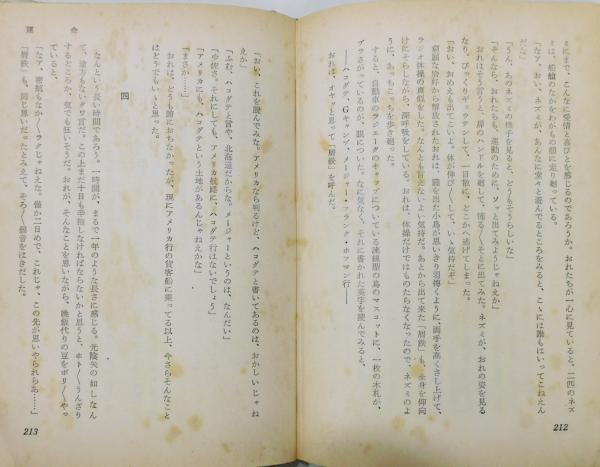 ミにまで、こんなに愛情と喜びとを感じるのであろうか。おれたちが一心に見ていると、二匹のネズ
ミは、船艙のなかをわがもの顔に走り廻っている。
「なア、おい、ネズミが、あんなに堂々と遊んでるところをみると、こゝには誰もはいってこねえん
だな」
「うん、あのネズミの様子を見ると、どうもそうらしいな」
「そんなら、おれたちも、運動のために、ソッと出てみようじゃねえか」
おれはそう言うと、扉のハンドルを廻して、怖る〱そとに出てみた。ネズミが、おれの姿を見る
なり、びっくりギョウテンして、一目散に、どこかへ逃げてしまった。
「おい、おめえも出てこいよ。体が伸び〱して、いゝ気持だぞ」
窮屈な恰好から解放されたおれは、籠を出た小鳥が思いきり羽搏くように、両手を高くさし上げて、
ラジオ体操の真似をした。なんとも言えないよい気持だ。あとから出て来た「屑鉄」も、全身を仰向
けにそらしながら、深呼吸をしている。おれは、体操だけではものたらなくなったので、ネズミのよ
うに、あっちこっちを歩き廻った。
すると、自動車のラジエータのキャップについている流線型の鳥のマスコットに、一枚の木札が、
ブラさがっているのが、眼についた。なに気なく、それに書かれた英字を読んでみると、
――ハコダテ、Gキャンプ、メージャー・フランク・ホフマン行――
おれは、オヤッと思って「屑鉄」を呼んだ。
212
「おい、これを読んでみな。アメリカなら判るけど、ハコダテと書いてあるのは、おかしいじゃね
えか」
「ふむ、ハコダテと言や、北海道だからな。メージャーというのは、なんだい」
「少佐さ。それにしても、アメリカ航路に、ハコダテ行はないでしょう」
「アメリカにも、ハコダテという土地があるんじゃねえかな」
「まさか……」
おれは、どうも腑におちなかったが、現にアメリカ行の貨客船に乗ってる以上、今さらそんなこと
はどうでもいゝと思った。
四
なんという長い時間であろう。一時間が、まるで一年のような長さに感じる。光陰矢の如しなん
て、途方もないタワ言だ。この上まだ十日も辛抱しなければならないかと思うと、ホト〱うんざり
するところか、気でも狂いそうだ。おれが、そんなことを思いながら、晩飯代りの豆をポリ〱やっ
ていると、
「なアヤ、密航もなか〱ラクじゃねえな。僅か二日めで、これじゃ、この先が思いやられらあ……」
「屑鉄」も、同じ思いだったとみえて、そろ〱弱音をはきだした。
運命
213